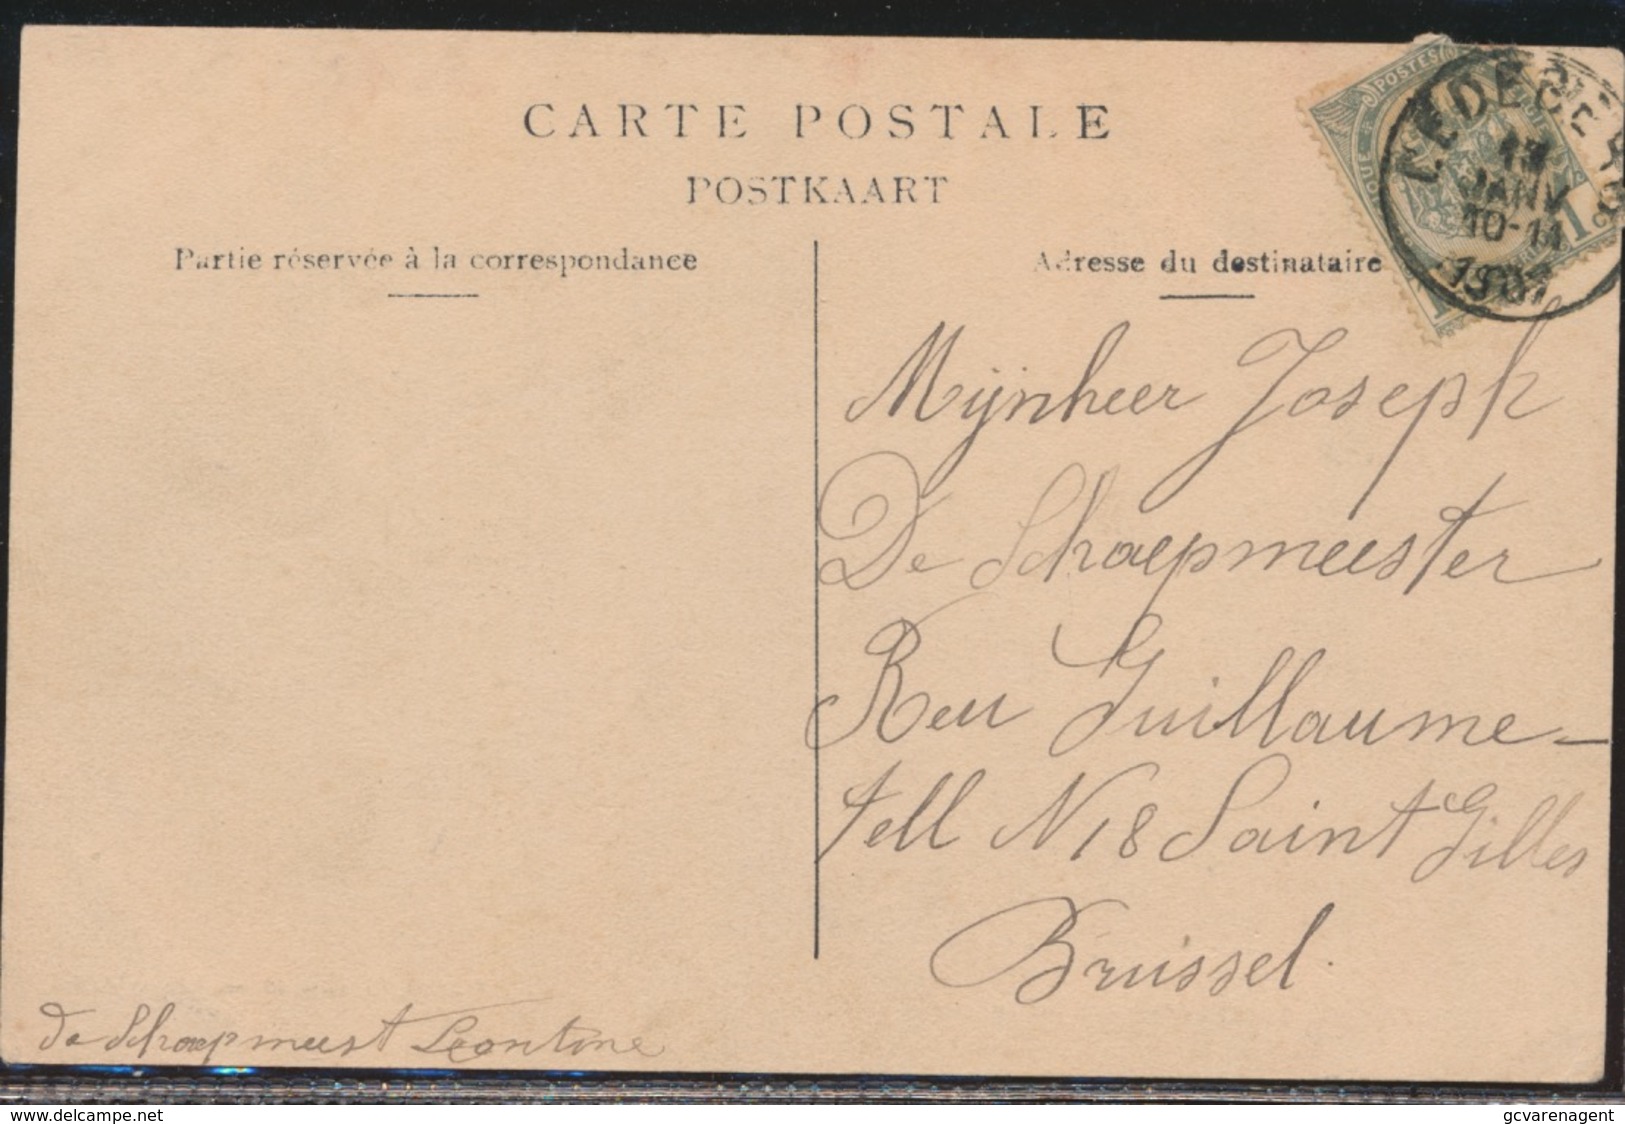 CARTE POSTALE
POSTKAART
Partie réservée à la correspondance
Adresse du destinataire
POSTES
1
1
13
JANV
10-11
1907
Mijnheer Joseph
De Schaepmeester
Reu Guillaume-
tell N 18 Saint Gilles
Brussel.
De Schaepmeest Leontine
delcampe.net
gcvarenagent